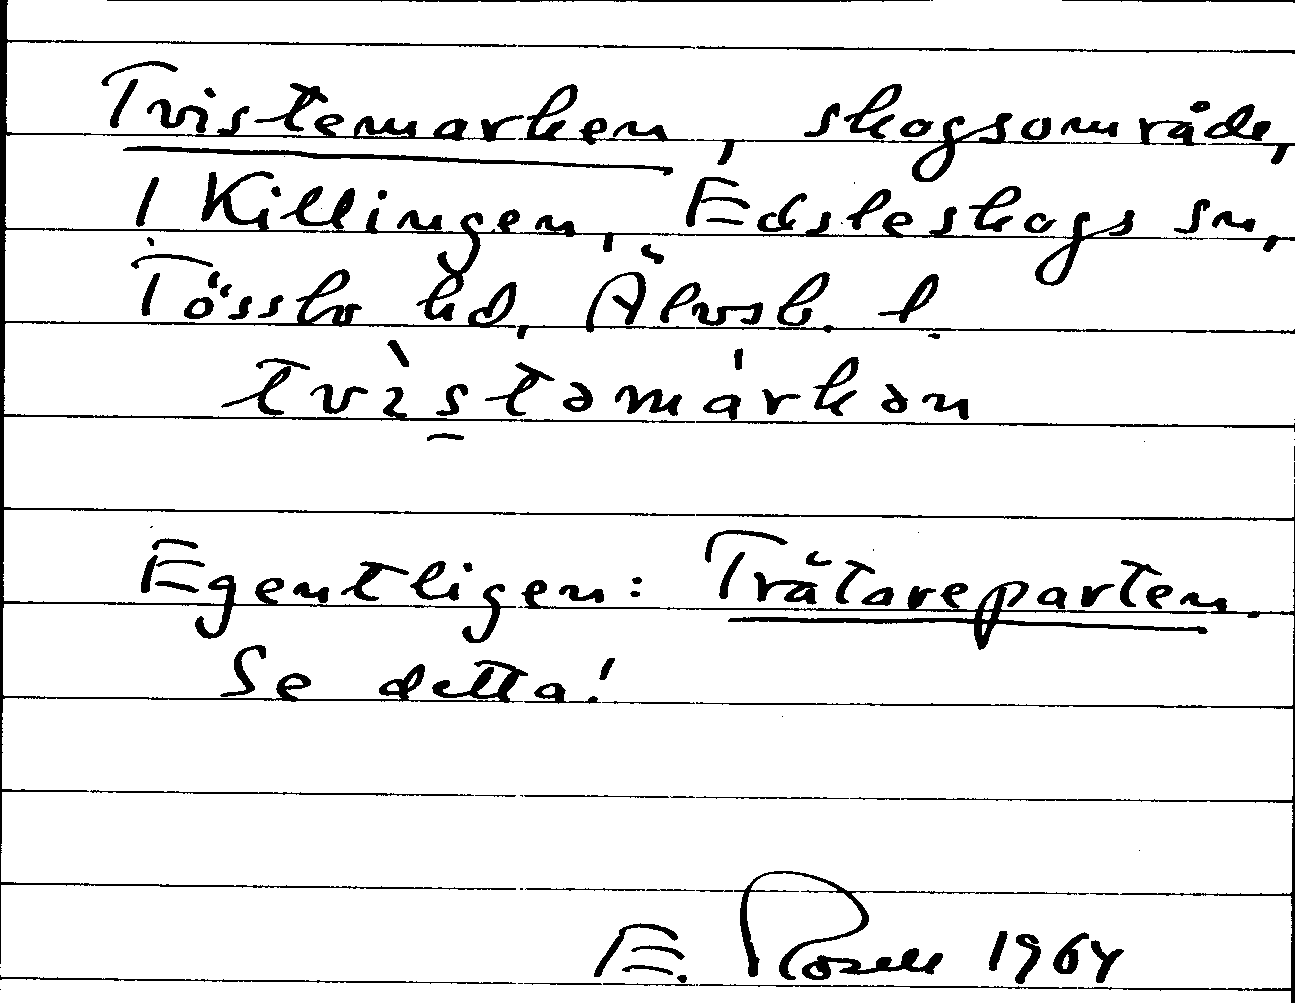 Tvistemarken, skogsområde,
i Killingen, Edsleskogs sn,
Tössbo hd, Älvsb. l.
tvìstəmárkən
Egentligen: Trätareparten.
Se detta!
E. Rosell 1964